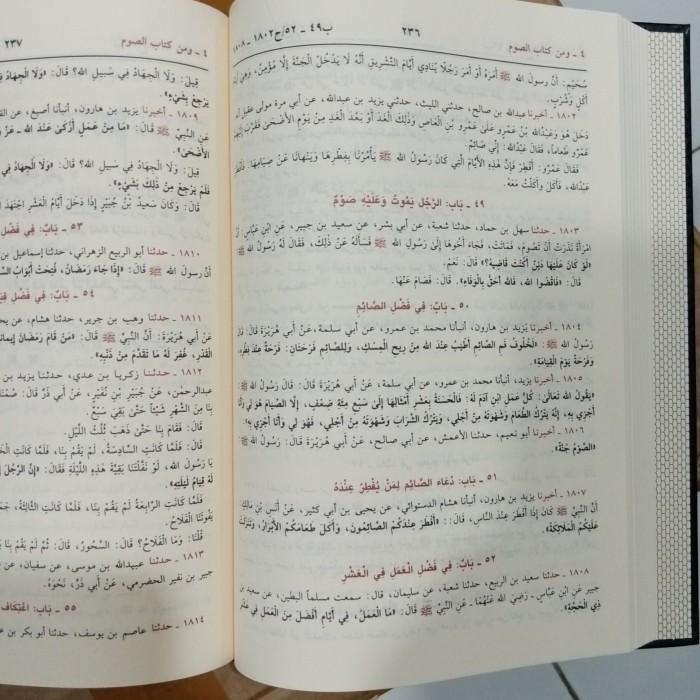 ٤ ـ ومن كتاب الصوم
٢٣٦
ب٤٩ ـ ٥٢/ح١٨٠٢ ـ ١٨٠٨
سُحَيْمٍ: أَنَّ رسولَ الله ﷺ أَمَرَهُ أَوْ أَمَرَ رَجُلًا يُنَادِي أَيَّامَ التَّشْرِيقِ أَنَّهُ لَا يَدْخُلُ الْجَنَّةَ إِلَّا مُؤْمِنٌ، وَهِيَ أَيَّامُ
أَكْلٍ وَشُرْبٍ.
١٨٠٢ ـ أخبرنا عبدالله بن صالح، حدثني الليث، حدثني يزيد بن عبدالله، عن أبي مرة مولى عقيل أنه
دَخَلَ هُوَ وَعَبْدُالله بْنُ عَمْرٍو عَلَىٰ عَمْرِو بْنِ الْعَاصِ وَذَلِكَ الْغَدَ أَوْ بَعْدَ الْغَدِ مِنْ يَوْمِ الأَضْحَىٰ، فَقَرَّبَ إِلَيْهِمْ
عَمْرٌو طَعَاماً، فَقَالَ عَبْدُالله: إِنِّي صَائِمٌ.
فَقَالَ عَمْرٌو: أَفْطِرْ فَإِنَّ هَذِهِ الأَيَّامَ الَّتِي كَانَ رَسُولُ الله ﷺ يَأْمُرُنَا بِفِطْرِهَا وَيَنْهَانَا عَنْ صِيَامِهَا. فَأَفْطَرَ
عبدُالله، فَأَكَلَ وَأَكَلْتُ مَعَهُ.
٤٩ ـ بَابُ: الرَّجُلِ يَمُوتُ وَعَلَيْهِ صَوْمٌ
١٨٠٣ ـ حدثنا سهل بن حماد، حدثنا شعبة، عن أبي بشر، عن سعيد بن جبير، عَنِ ابْنِ عَبَّاسٍ أَنَّ
امْرَأَةً نَذَرَتْ أَنْ تَصُومَ، فَمَاتَتْ، فَجَاءَ أَخُوهَا إِلَىٰ رَسُولِ الله ﷺ فَسَأَلَهُ عَنْ ذَلِكَ، فَقَالَ لَهُ رَسُولُ الله ﷺ
«لَوْ كَانَ عَلَيْهَا دَيْنٌ أَكُنْتَ قَاضِيَهُ؟» قَالَ: نَعَمْ.
قَالَ: «فَاقْضُوا الله، فَالله أَحَقُّ بِالْوَفَاءِ». قَالَ: فَصَامَ عَنْهَا.
٥٠ ـ بَابٌ: فِي فَضْلِ الصَّائِمِ
١٨٠٤ ـ أخبرنا يزيد بن هارون، أنبأنا محمد بن عمرو، عن أبي سلمة، عَنْ أَبِي هُرَيْرَةَ قَالَ: قَالَ
رَسُولُ الله ﷺ: «لَخُلُوفُ فَمِ الصَّائِمِ أَطْيَبُ عِنْدَ الله مِنْ رِيحِ الْمِسْكِ، وَلِلصَّائِمِ فَرْحَتَانِ: فَرْحَةٌ عِنْدَ فِطْرِهِ
وَفَرْحَةٌ يَوْمَ الْقِيَامَةِ».
١٨٠٥ ـ أخبرنا يزيد، أنبأنا محمد بن عمرو، عن أبي سلمة، عَنْ أَبِي هُرَيْرَةَ: قَالَ: قَالَ رَسُولُ الله ﷺ
«يَقُولُ الله تَعَالَىٰ: كُلُّ عَمَلِ ابْنِ آدَمَ لَهُ: فَالْحَسَنَةُ بِعَشْرِ أَمْثَالِهَا إِلَىٰ سَبْعِ مِئَةِ ضِعْفٍ، إِلَّا الصِّيَامَ هُوَ لِي وَأَنَا
أَجْزِي بِهِ، إِنَّهُ يَتْرُكُ الطَّعَامَ وَشَهْوَتَهُ مِنْ أَجْلِي، وَيَتْرُكُ الشَّرَابَ وَشَهْوَتَهُ مِنْ أَجْلِي، فَهُوَ لِي وَأَنَا أَجْزِي بِهِ».
١٨٠٦ ـ أخبرنا أبو نعيم، حدثنا الأعمش، عن أبي صالح، عَنْ أَبِي هُرَيْرَةَ قَالَ: قَالَ رَسُولُ الله ﷺ
«الصَّوْمُ جُنَّةٌ».
٥١ ـ بَابُ: دُعَاءِ الصَّائِمِ لِمَنْ يُفْطِرُ عِنْدَهُ
١٨٠٧ ـ أخبرنا يزيد بن هارون، أنبأنا هشام الدستوائي، عن يحيى بن أبي كثير، عَنْ أَنَسِ بْنِ مَالِكٍ
أَنَّ النَّبِيَّ ﷺ كَانَ إِذَا أَفْطَرَ عِنْدَ النَّاسِ، قَالَ: «أَفْطَرَ عِنْدَكُمُ الصَّائِمُونَ، وَأَكَلَ طَعَامَكُمُ الأَبْرَارُ، وَتَنَزَّلَتْ
عَلَيْكُمُ الْمَلَائِكَةُ».
٥٢ ـ بَابٌ: فِي فَضْلِ الْعَمَلِ فِي الْعَشْرِ
١٨٠٨ ـ حدثنا سعيد بن الربيع، حدثنا شعبة، عن سليمان، قال: سمعت مسلماً البطين، عن سعيد بن
جبير عَنِ ابْنِ عَبَّاسٍ ـ رَضِيَ الله عَنْهُمَا ـ عَنِ النَّبِيِّ ﷺ قَالَ: «مَا الْعَمَلُ، فِي أَيَّامٍ أَفْضَلَ مِنَ الْعَمَلِ فِي عَشْرِ
ذِي الْحَجَّةِ».
٤ ـ ومن كتاب الصوم
٢٣٧
قِيلَ: وَلَا الْجِهَادُ فِي سَبِيلِ الله؟ قَالَ: «وَلَا الْجِهَادُ فِي
يَرْجِعْ بِشَيْءٍ».
١٨٠٩ ـ أخبرنا يزيد بن هارون، أنبأنا أصبغ، عن
عَنِ النَّبِيِّ ﷺ قَالَ: «مَا مِنْ عَمَلٍ أَزْكَىٰ عِنْدَ الله ـ عَزَّ
الأَضْحَىٰ».
قِيلَ: وَلَا الْجِهَادُ فِي سَبِيلِ الله؟ قَالَ: «وَلَا الْجِهَادُ فِي
فَلَمْ يَرْجِعْ مِنْ ذَلِكَ بِشَيْءٍ».
قَالَ: وَكَانَ سَعِيدُ بْنُ جُبَيْرٍ إِذَا دَخَلَ أَيَّامُ الْعَشْرِ اجْتَهَدَ
٥٣ ـ بَابٌ: فِي فَضْلِ
١٨١٠ ـ حدثنا أبو الربيع الزهراني، حدثنا إسماعيل بن
أَنَّ رَسُولَ الله ﷺ قَالَ: «إِذَا جَاءَ رَمَضَانُ، فُتِحَتْ أَبْوَابُ
٥٤ ـ بَابٌ: فِي فَضْلِ
١٨١١ ـ حدثنا وهب بن جرير، حدثنا هشام، عن
عَنْ أَبِي هُرَيْرَةَ: أَنَّ النَّبِيَّ ﷺ قَالَ: «مَنْ قَامَ رَمَضَانَ إِيمَاناً
الْقَدْرِ، غُفِرَ لَهُ مَا تَقَدَّمَ مِنْ ذَنْبِهِ».
١٨١٢ ـ حدثنا زكريا بن عدي، حدثنا يزيد بن
عبدالرحمٰن، عَنْ جُبَيْرِ بْنِ نُفَيْرٍ، عَنْ أَبِي ذَرٍّ قَالَ: صُمْنَا
بِنَا مِنَ الشَّهْرِ شَيْئاً حَتَّىٰ بَقِيَ سَبْعٌ.
قَالَ: فَقَامَ بِنَا حَتَّىٰ ذَهَبَ ثُلُثُ اللَّيْلِ.
قَالَ: فَلَمَّا كَانَتِ السَّادِسَةُ، لَمْ يَقُمْ بِنَا، فَلَمَّا كَانَتِ
يَا رَسُولَ الله، لَوْ نَفَلْتَنَا بَقِيَّةَ هَذِهِ اللَّيْلَةِ؟ فَقَالَ: «إِنَّ الرَّجُلَ
لَهُ قِيَامُ لَيْلَتِهِ».
فَلَمَّا كَانَتِ الرَّابِعَةُ لَمْ يَقُمْ بِنَا، فَلَمَّا كَانَتِ الثَّالِثَةُ،
يَفُوتَنَا الْفَلَاحُ.
قُلْنَا: وَمَا الْفَلَاحُ؟ قَالَ: السُّحُورُ، قَالَ: ثُمَّ لَمْ يَقُمْ بِنَا
١٨١٣ ـ حدثنا عبيدالله بن موسى، عن سفيان، عن
جبير بن نفير الحضرمي، عَنْ أَبِي ذَرٍّ، نَحْوَهُ.
٥٥ ـ بَابُ: اعْتِكَافِ
١٨١٤ ـ حدثنا عاصم بن يوسف، حدثنا أبو بكر بن